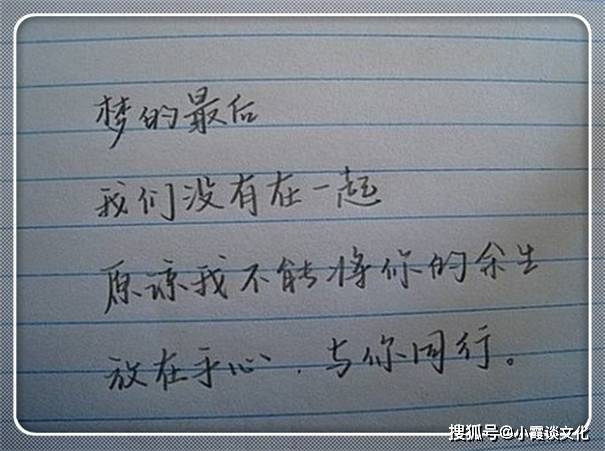 梦的最后
我们没有在一起
原谅我不能将你的余生
放在手心，与你同行。
搜狐号@小霞谈文化